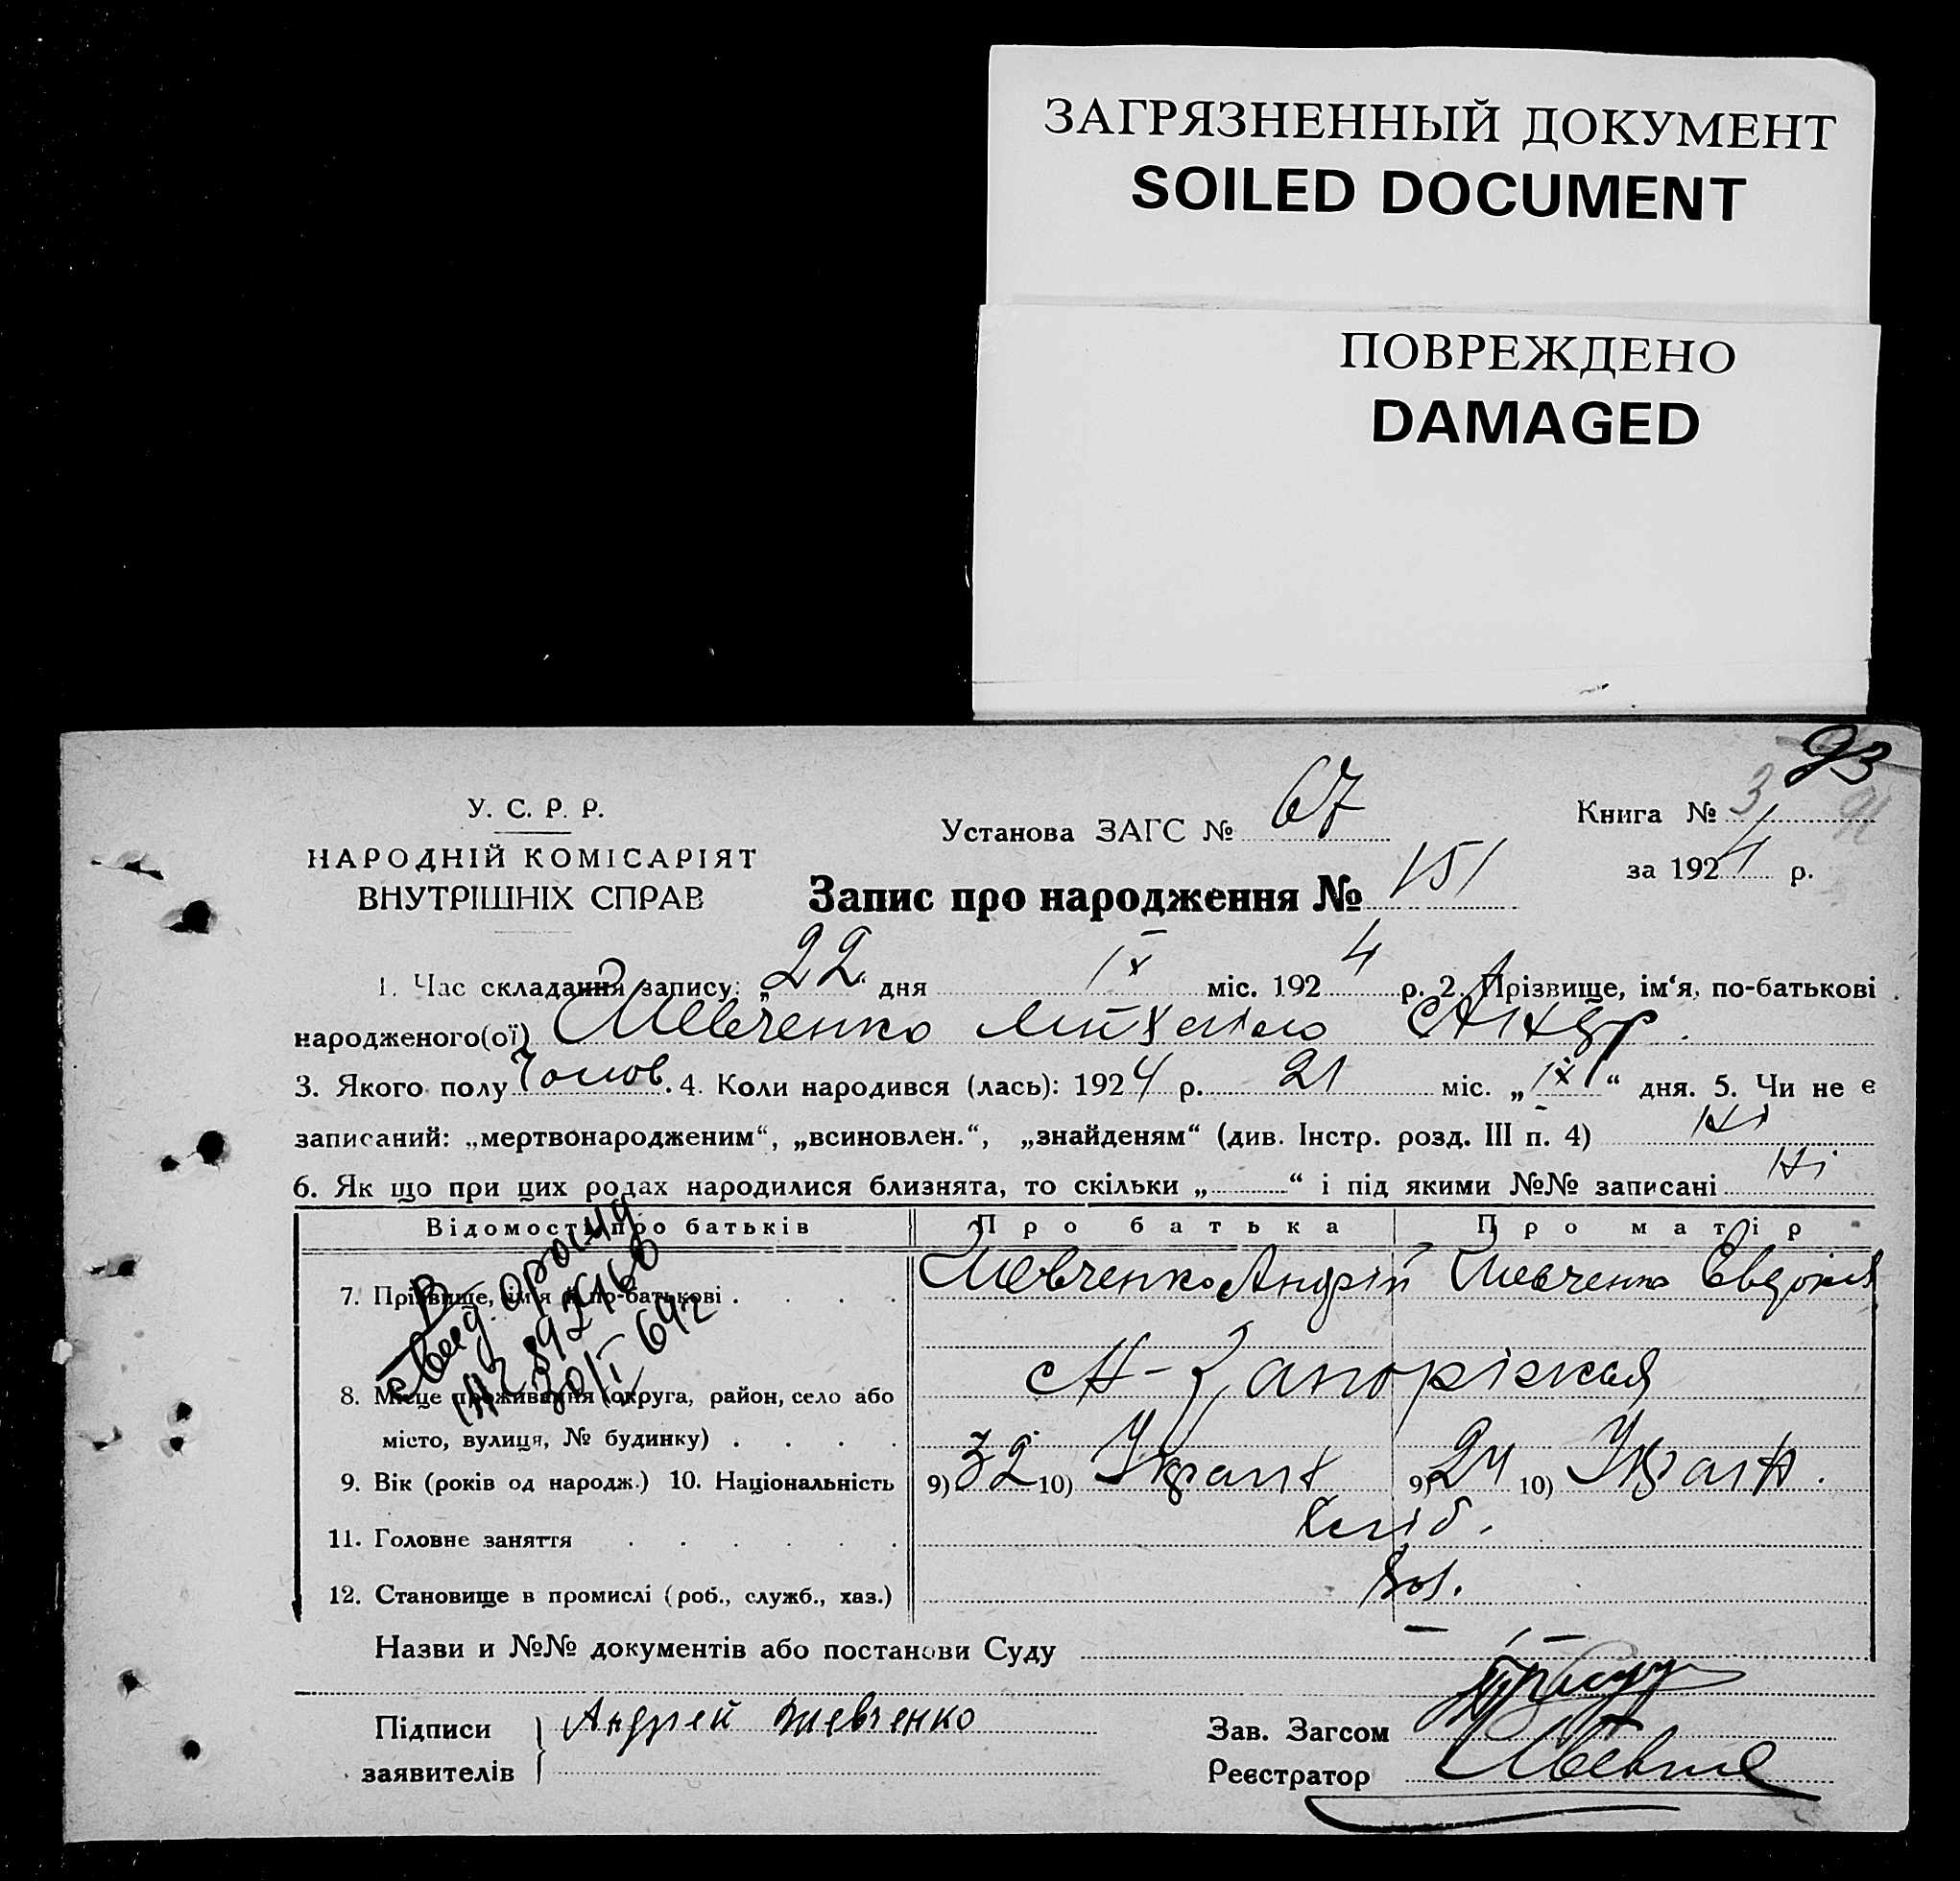 ЗАГРЯЗНЕННЫЙ ДОКУМЕНТ
SOILED DOCUMENT
ПОВРЕЖДЕНО
DAMAGED
93
У. С. Р. Р.
НАРОДНІЙ КОМІСАРІЯТ
ВНУТРІШНІХ СПРАВ
Установа ЗАГС № 67
Книга № 3
за 1924 р.
Запис про народження № 151
1. Час складання запису: „22“ дня IX міс. 1924 р. 2. Прізвище, ім‘я, по-батькові
народженого(ої) Шевченко Михайло Андр.
3. Якого полу Чолов. 4. Коли народився (лась): 1924 р. 21 міс. „IX“ дня. 5. Чи не є
записаний: „мертвонародженим“, „всиновлен.“, „знайденям“ (див. Інстр. розд. III п. 4) Ні
6. Як що при цих родах народилися близнята, то скільки „ “ і під якими №№ записані Ні
Відомості про батьків Про батька Про матір
7. Прізвище, ім‘я й по-батькові . . . . Шевченко Андрій Шевченко Євдокія
8. Місце проживання (округа, район, село або Н-Запоріжжя
місто, вулиця, № будинку) . . . .
9. Вік (років од народж.) 10. Національність 9) 32 10) Україн 9) 24 10) Україн.
11. Головне заняття . . . . . . Хліб.
12. Становище в промислі (роб., служб., хаз.) Хоз.
Назви и №№ документів або постанови Суду
Підписи Андрей Шевченко
заявителів
Зав. Загсом
Реєстратор